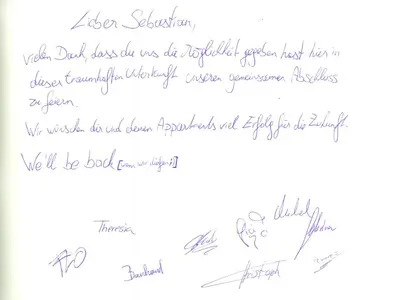 Lieber Sebastian,
vielen Dank, dass du uns die Möglichkeit gegeben hast hier in
dieser traumhaften Unterkunft unseren gemeinsamen Abschluss
zu feiern.
Wir wünschen dir und deinen Appartments viel Erfolg für die Zukunft.
We'll be back [wenn wir dürfen ;)]
Theresia
Christoph